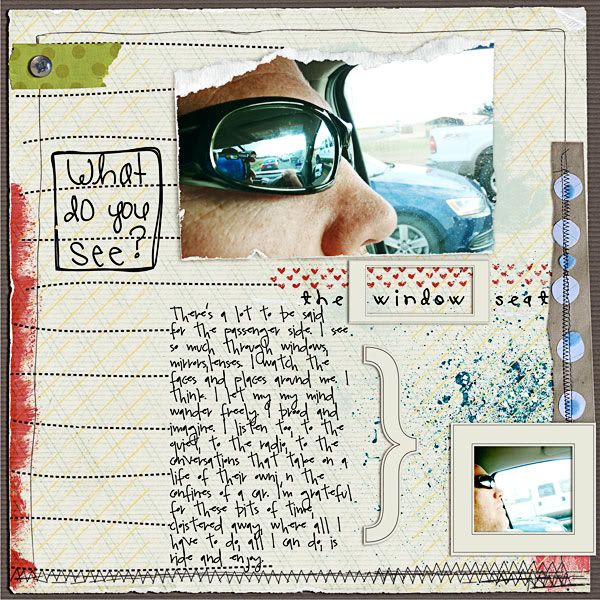 What
do you
see?
the window seat
There's a lot to be said
for the passenger side. I see
so much through windows,
mirrors, lenses. I watch the
faces and places around me. I
think. I let my my mind
wander freely. I brood and
imagine. I listen too, to the
quiet, to the radio, to the
conversations that take on a
life of their own, n the
confines of a car. I'm grateful
for these bits of time,
cloistered away, where all I
have to do, all I can do, is
ride and enjoy.